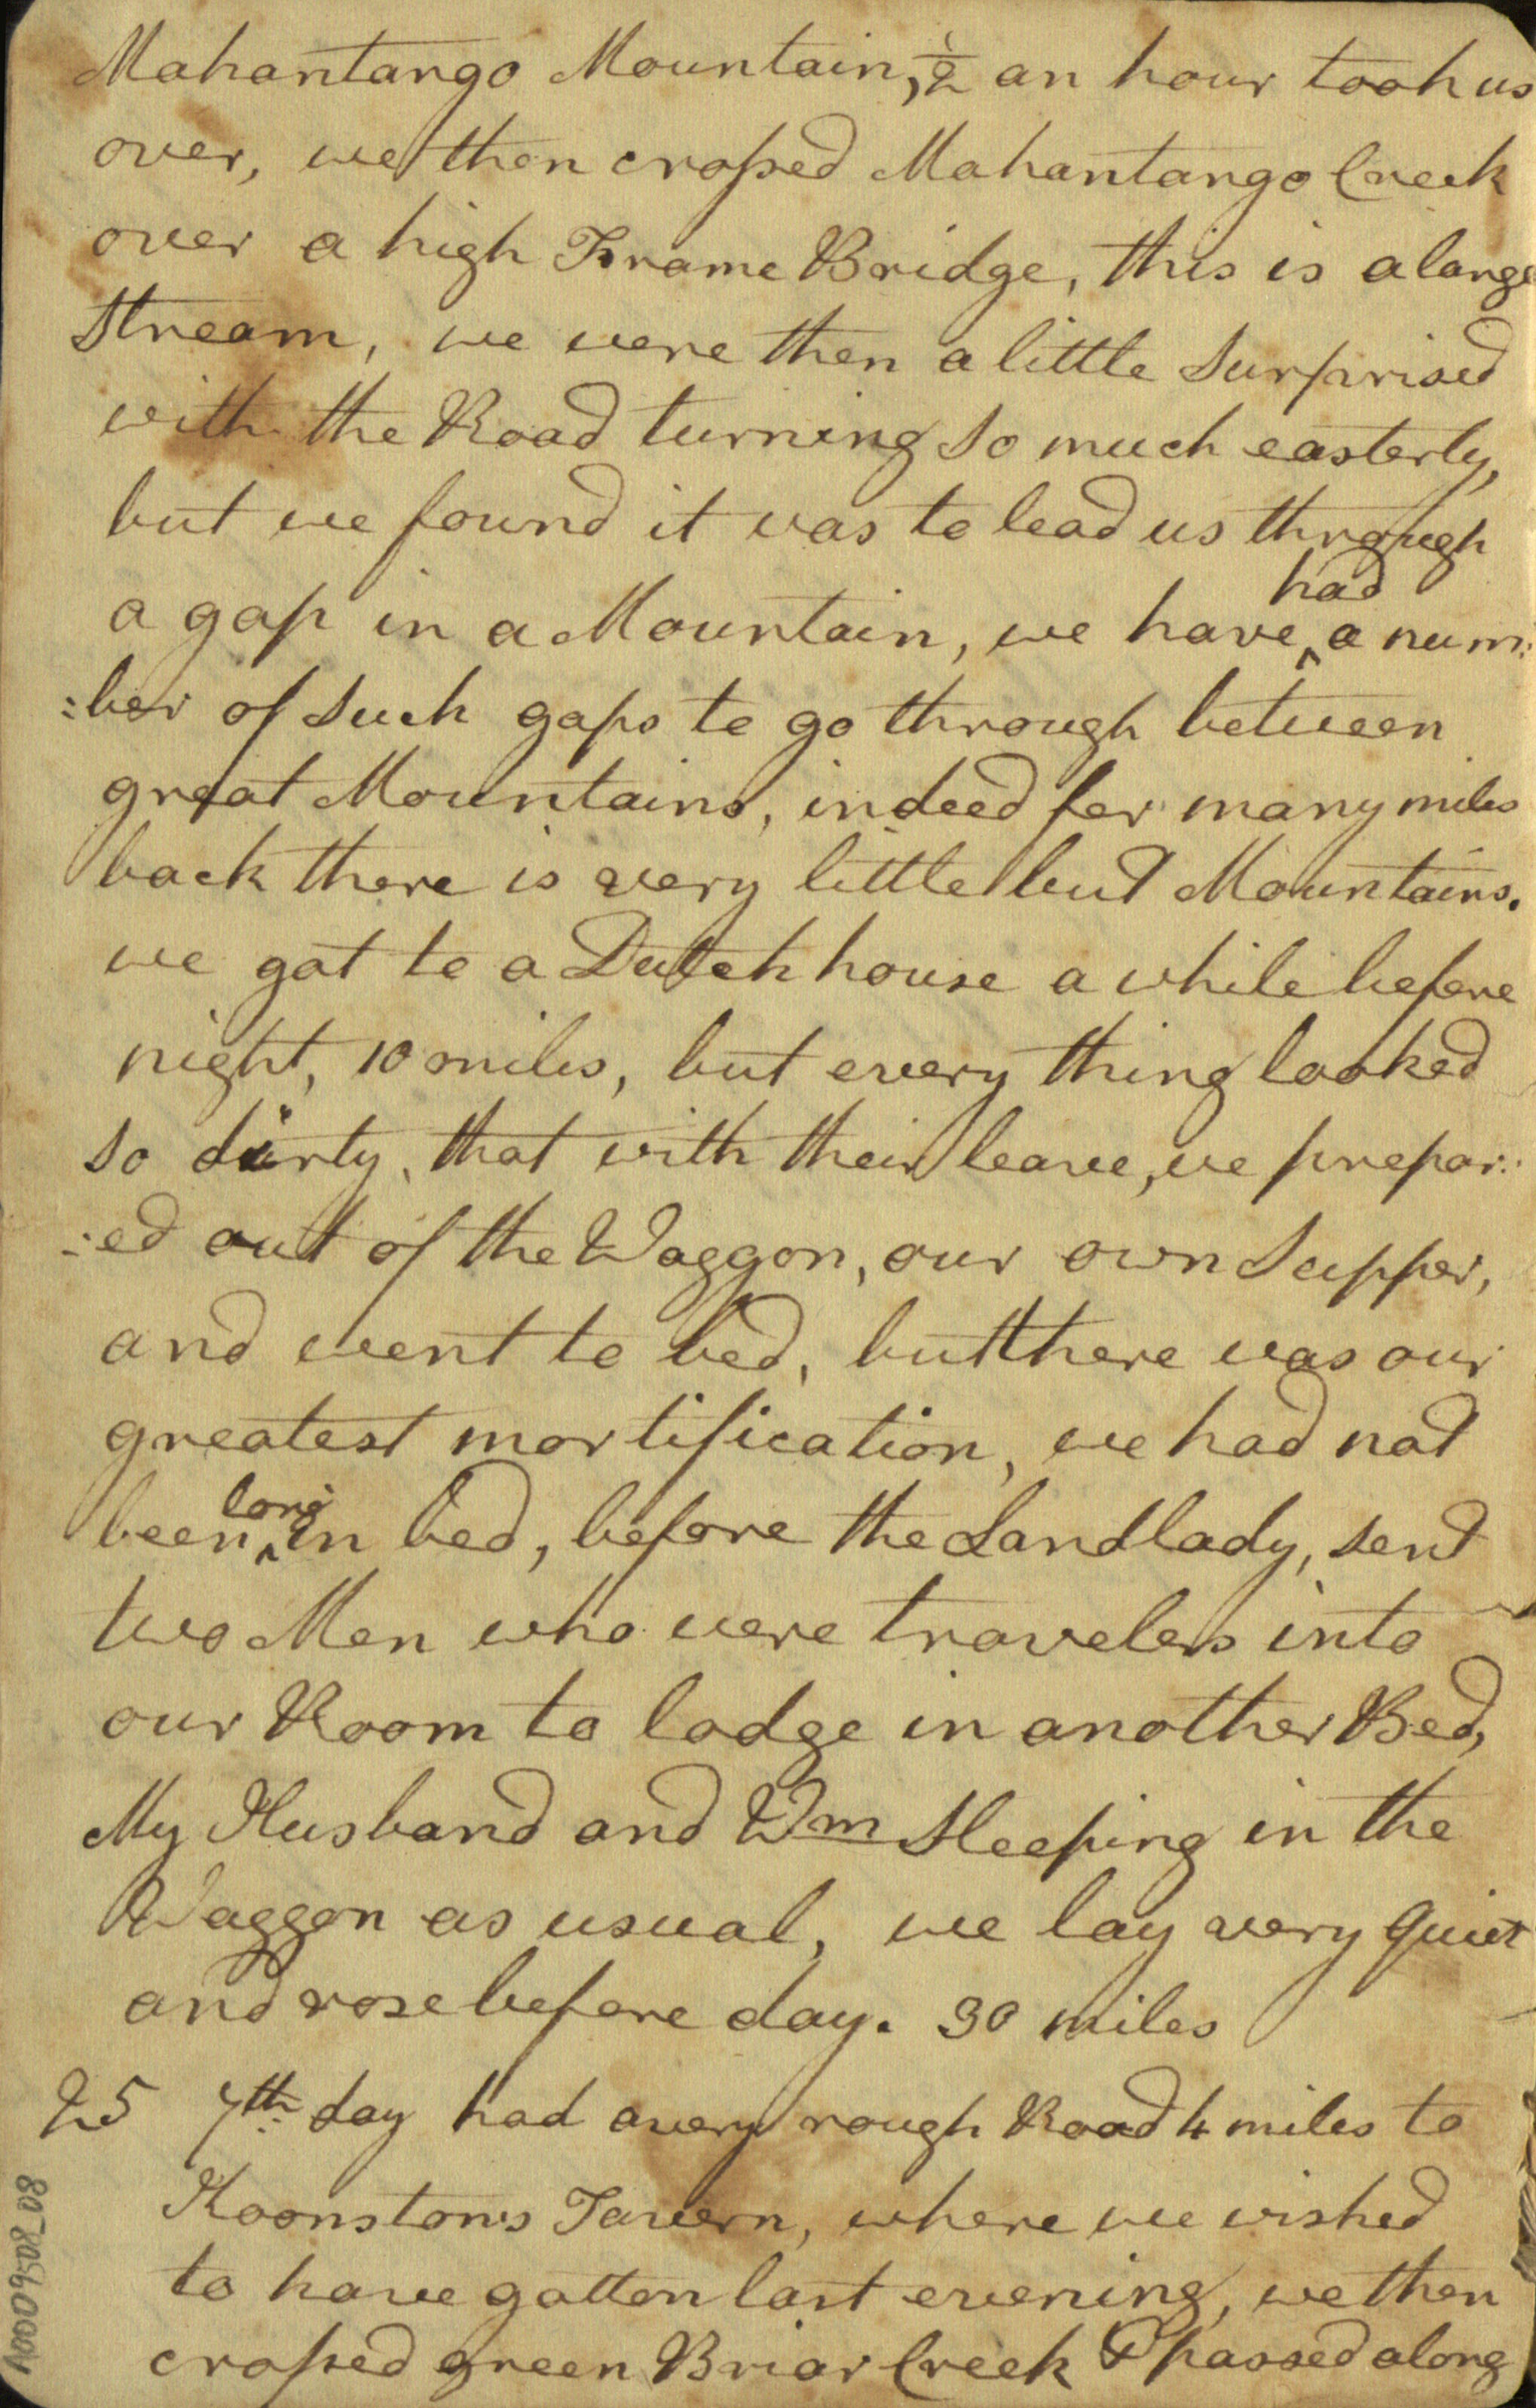 Mahantango Mountain, ½ an hour took us
over, we then crossed Mahantango Creek
over a high Frame Bridge, this is a large
Stream, we were then a little Surprised
with the Road turning So much easterly,
but we found it was to lead us through
had
a gap in a Mountain, we have ^ a num:
:ber of Such gaps to go through between
great Mountains, indeed for many miles
back there is very little but Mountains.
we got to a Dutch house a while before
night, 10 miles, but every thing looked
So dirty, that with their leave, we prepar:
:ed out of the Waggon, our own Supper,
and went to bed, but there was our
greatest mortification, we had not
long
been ^ in bed, before the Landlady, Sent
two Men who were travelers into
our Room to lodge in another Bed,
My Husband and Wm Sleeping in the
Waggon as usual, we lay very quiet
and rose before day. 30 miles
25 7th day had a very rough Road 4 miles to
Koonstons Tavern, where we wished
to have gotten last evening, we then
crossed green Briar Creek & passed along
A0009508_08